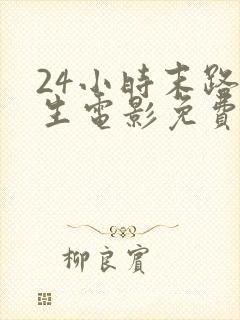 24小時末路
生電影免費
柳良賓